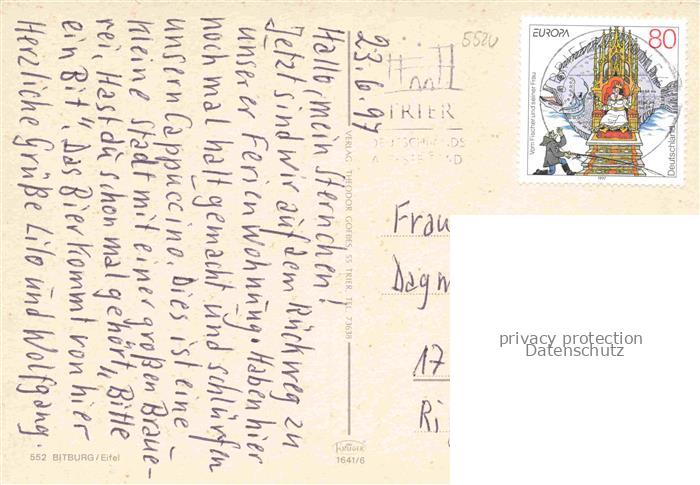 23.6.97
Hallo, mein Sternchen!
Jetzt sind wir auf dem Rückweg zu
unserer Ferienwohnung. Haben hier
noch mal halt gemacht und schlürfen
unsern Cappuccino. Dies ist eine
kleine Stadt mit einer großen Braue-
rei. Hast du schon mal gehört, „Bitte
ein Bit". Das Bier kommt von hier
Herzliche Grüße Lilo und Wolfgang.
552 BITBURG/Eifel
VERLAG THEODOR GOEBEL, 55 TRIER, TEL. 73638
KRÜGER
1641/6
5520
TRIER
DEUTSCHLANDS
ÄLTESTE STADT
EUROPA
80
Vom Fischer und seiner Frau
Deutschland
1997
Frau
Dagm
17
Ri
privacy protection
Datenschutz